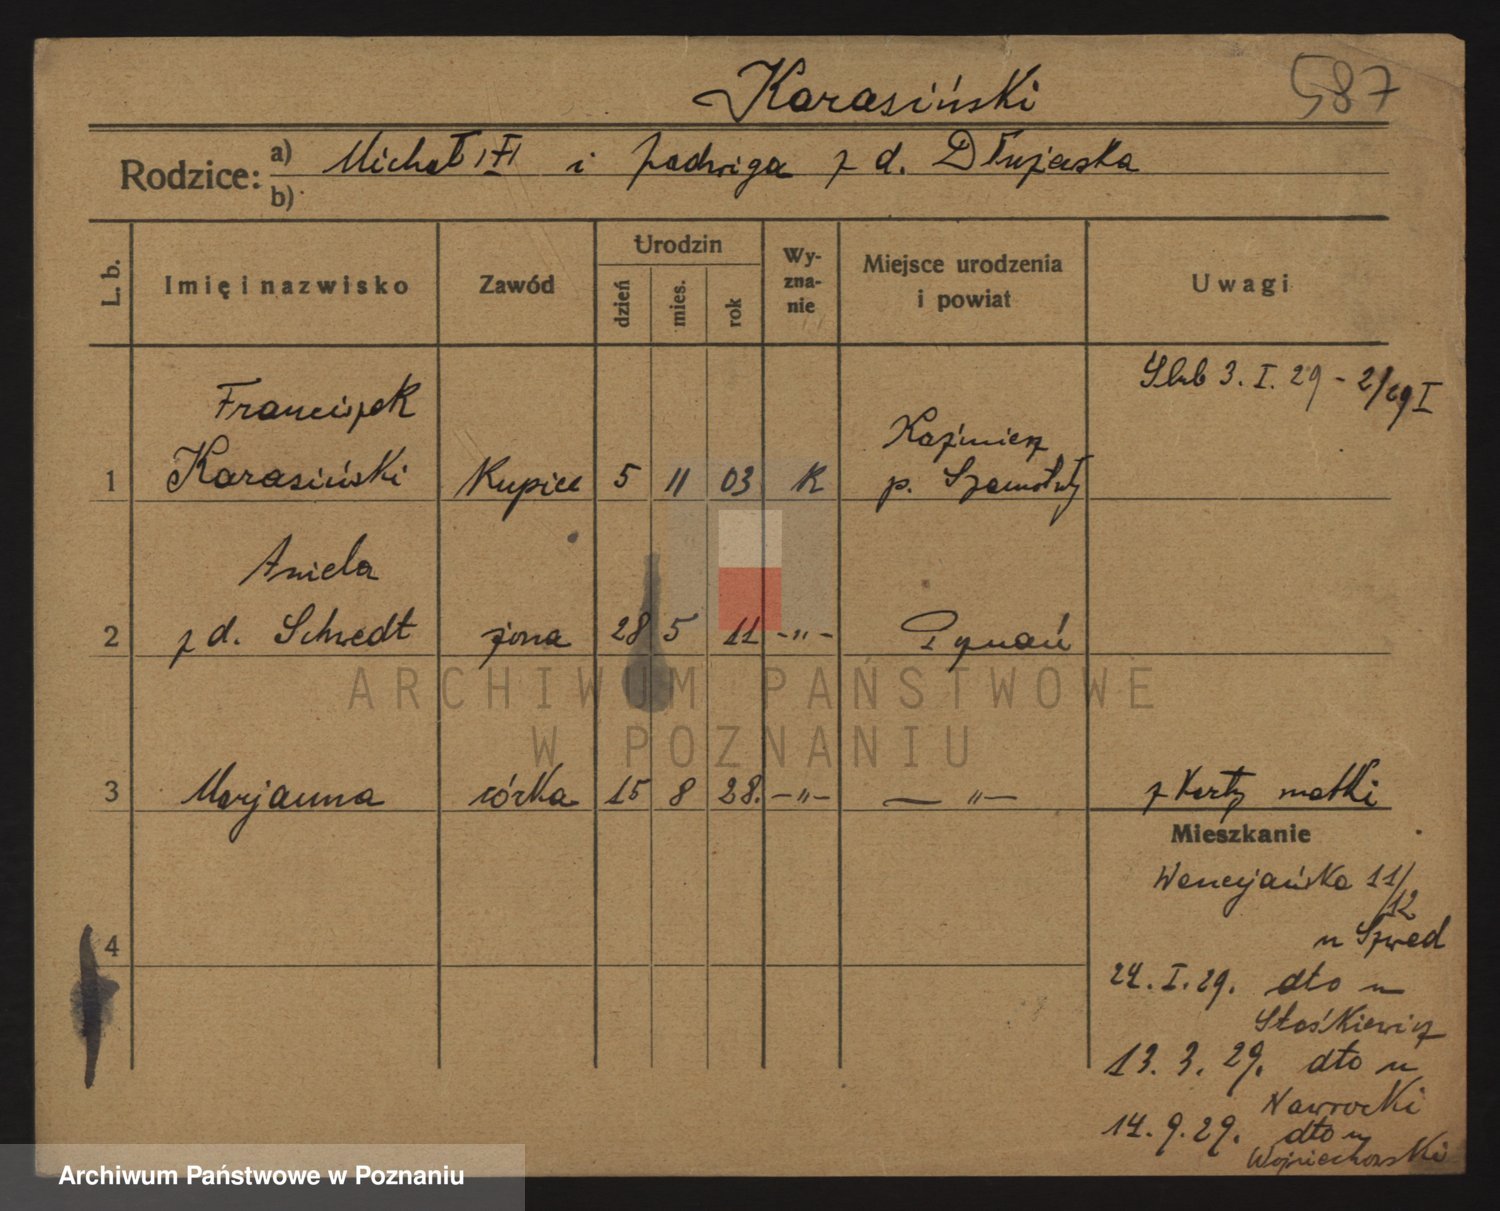 Karasiński
587
Rodzice: a) Michał VI i Jadwiga z d. Dłużewska
b)
L. b.
Imię i nazwisko
Zawód
Urodzin
dzień
mies.
rok
Wy-
zna-
nie
Miejsce urodzenia
i powiat
Uwagi
Ślub 3. I. 29 - 2/29 I
Franciszek
Kaźmierz
1 Karasiński Kupiec 5 11 03 K p. Szamotuły
Aniela
2 z d. Schwedt żona 28 5 11 -"- Poznań
3 Marjanna córka 15 8 28. -"- — "— z Karty matki
Mieszkanie
Wenecjańska 11/
12
4
u Szwed
24. I. 29. dto u
Staśkiewicz
13. 3. 29. dto u
Nawrocki
14. 9. 29. dto u
Wojciechowski
ARCHIWUM PAŃSTWOWE
W POZNANIU
Archiwum Państwowe w Poznaniu